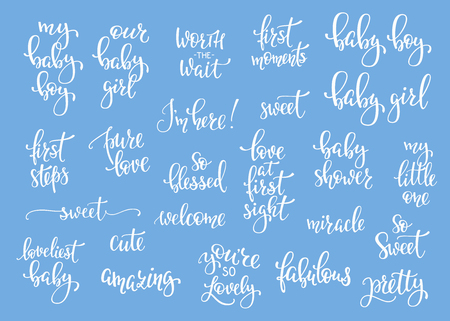 my
baby
boy
our
baby
girl
worth
-the-
wait
first
moments
baby boy
baby girl
I'm here!
sweet
first
steps
pure
love
so
blessed
love
at
first
sight
baby
shower
my
little
one
sweet
welcome
miracle
so
sweet
loveliest
baby
cute
amazing
you're
so
lovely
fabulous
pretty